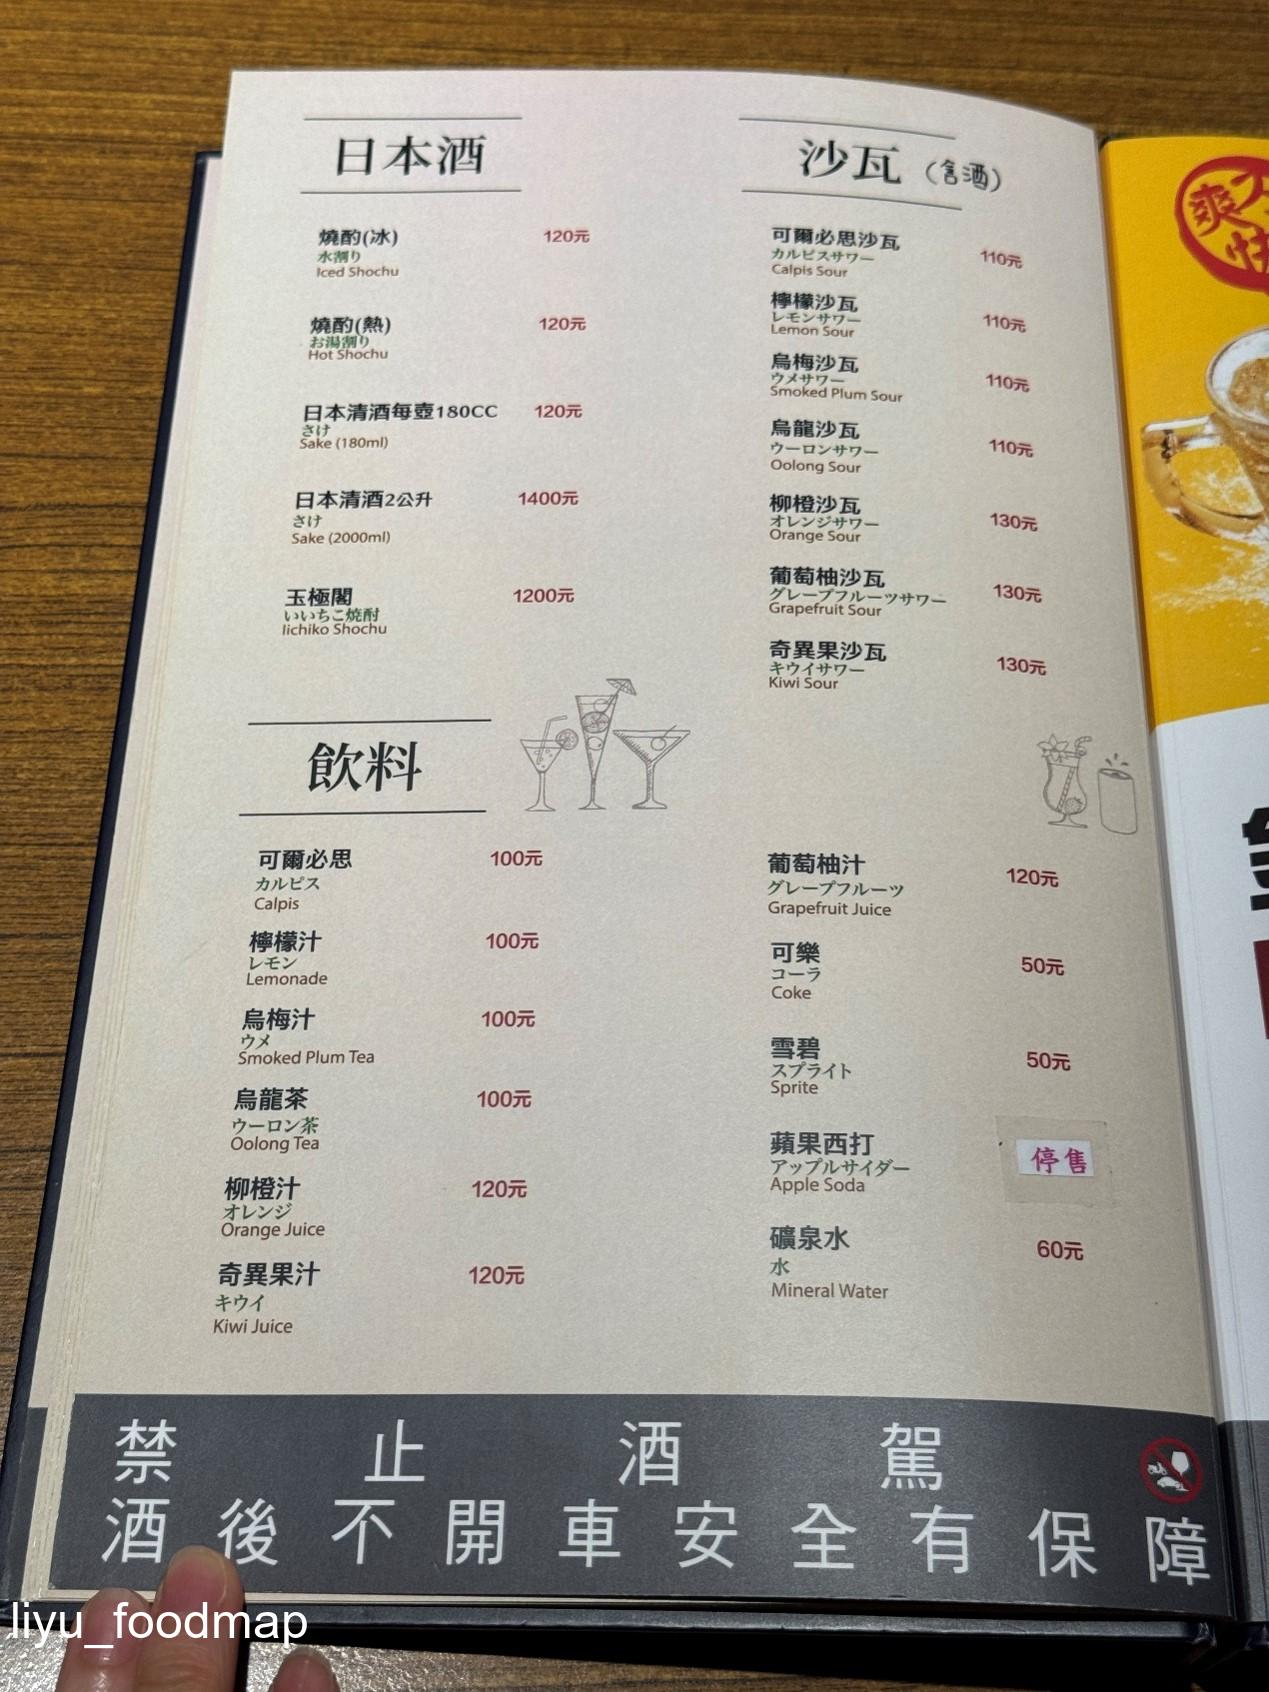 日本酒
燒酌(冰) 120元
水割り
Iced Shochu
燒酌(熱) 120元
お湯割り
Hot Shochu
日本清酒每壺180CC 120元
さけ
Sake (180ml)
日本清酒2公升 1400元
さけ
Sake (2000ml)
玉極閣 1200元
いいちこ焼酎
Iichiko Shochu
沙瓦 (含酒)
可爾必思沙瓦 110元
カルピスサワー
Calpis Sour
檸檬沙瓦 110元
レモンサワー
Lemon Sour
烏梅沙瓦 110元
ウメサワー
Smoked Plum Sour
烏龍沙瓦 110元
ウーロンサワー
Oolong Sour
柳橙沙瓦 130元
オレンジサワー
Orange Sour
葡萄柚沙瓦 130元
グレープフルーツサワー
Grapefruit Sour
奇異果沙瓦 130元
キウイサワー
Kiwi Sour
飲料
可爾必思 100元
カルピス
Calpis
檸檬汁 100元
レモン
Lemonade
烏梅汁 100元
ウメ
Smoked Plum Tea
烏龍茶 100元
ウーロン茶
Oolong Tea
柳橙汁 120元
オレンジ
Orange Juice
奇異果汁 120元
キウイ
Kiwi Juice
葡萄柚汁 120元
グレープフルーツ
Grapefruit Juice
可樂 50元
コーラ
Coke
雪碧 50元
スプライト
Sprite
蘋果西打 停售
アップルサイダー
Apple Soda
礦泉水 60元
水
Mineral Water
禁止酒駕
酒後不開車安全有保障
爽
快
liyu_foodmap